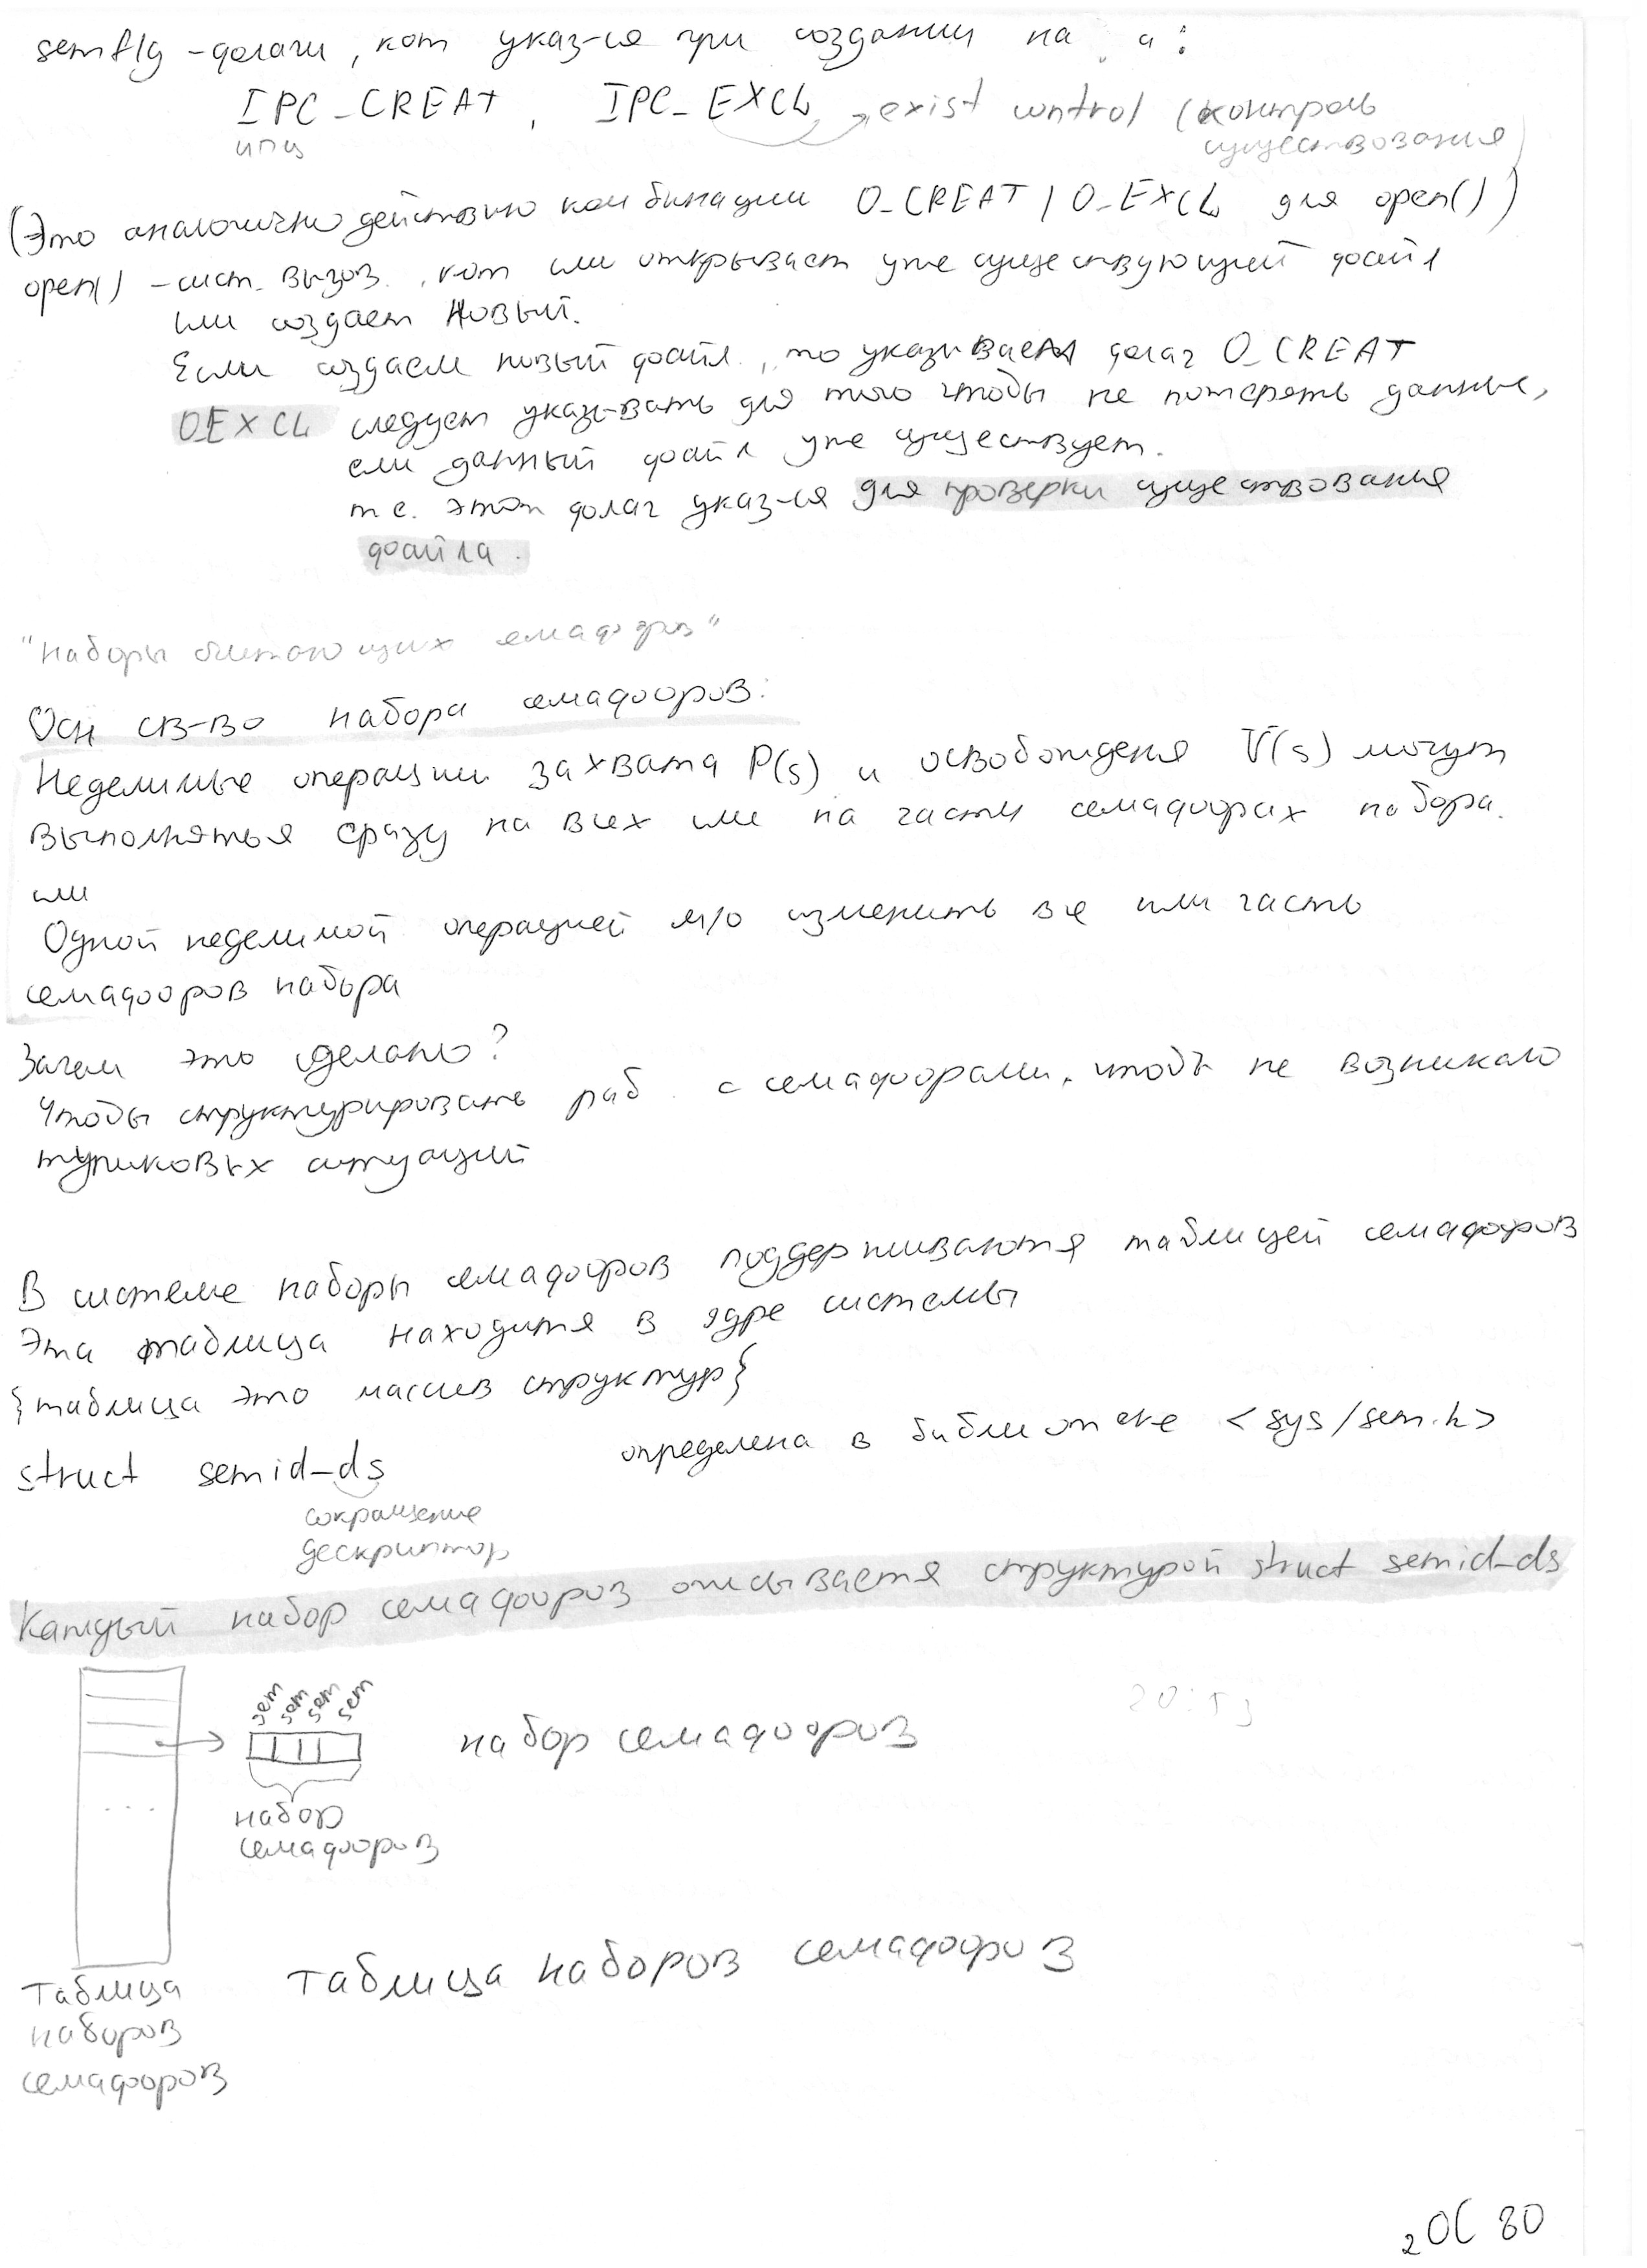 semflg - флаги, кот указ-ся при создании на а:
IPC_CREAT, IPC_EXCL → exist control (контроль
ипц
существования)
(Это аналогично действию комбинации O_CREAT | O_EXCL для open())
open() - сист. вызов, кот или открывает уже существующий файл
или создает новый.
Если создаем новый файл, то указываем флаг O_CREAT
O_EXCL следует указывать для того чтобы не потерять данные,
если данный файл уже существует.
т.е. этот флаг указ-ся для проверки существования
файла.
"наборы считающих семафоров"
Осн св-во набора семафоров:
Неделимые операции захвата P(s) и освобождения V(s) могут
выполняться сразу на всех или на части семафорах набора.
или
Одной неделимой операцией м/о изменить все или часть
семафоров набора
Зачем это сделано?
Чтобы структурировать раб. с семафорами, чтобы не возникало
тупиковых ситуаций
В системе наборы семафоров поддерживаются таблицей семафоров
Эта таблица находится в ядре системы
{таблица это массив структур}
struct semid_ds определена в библиотеке <sys/sem.h>
сокращение
дескриптор
Каждый набор семафоров описывается структурой struct semid_ds
sem sem sem sem
набор семафоров
20:53
набор
семафоров
таблица наборов семафоров
Таблица
наборов
семафоров
2 ОС 80